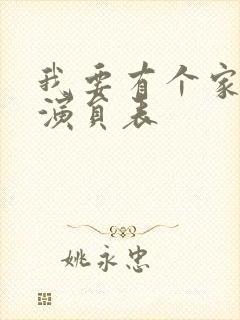 我要有个家
演员表
姚永忠